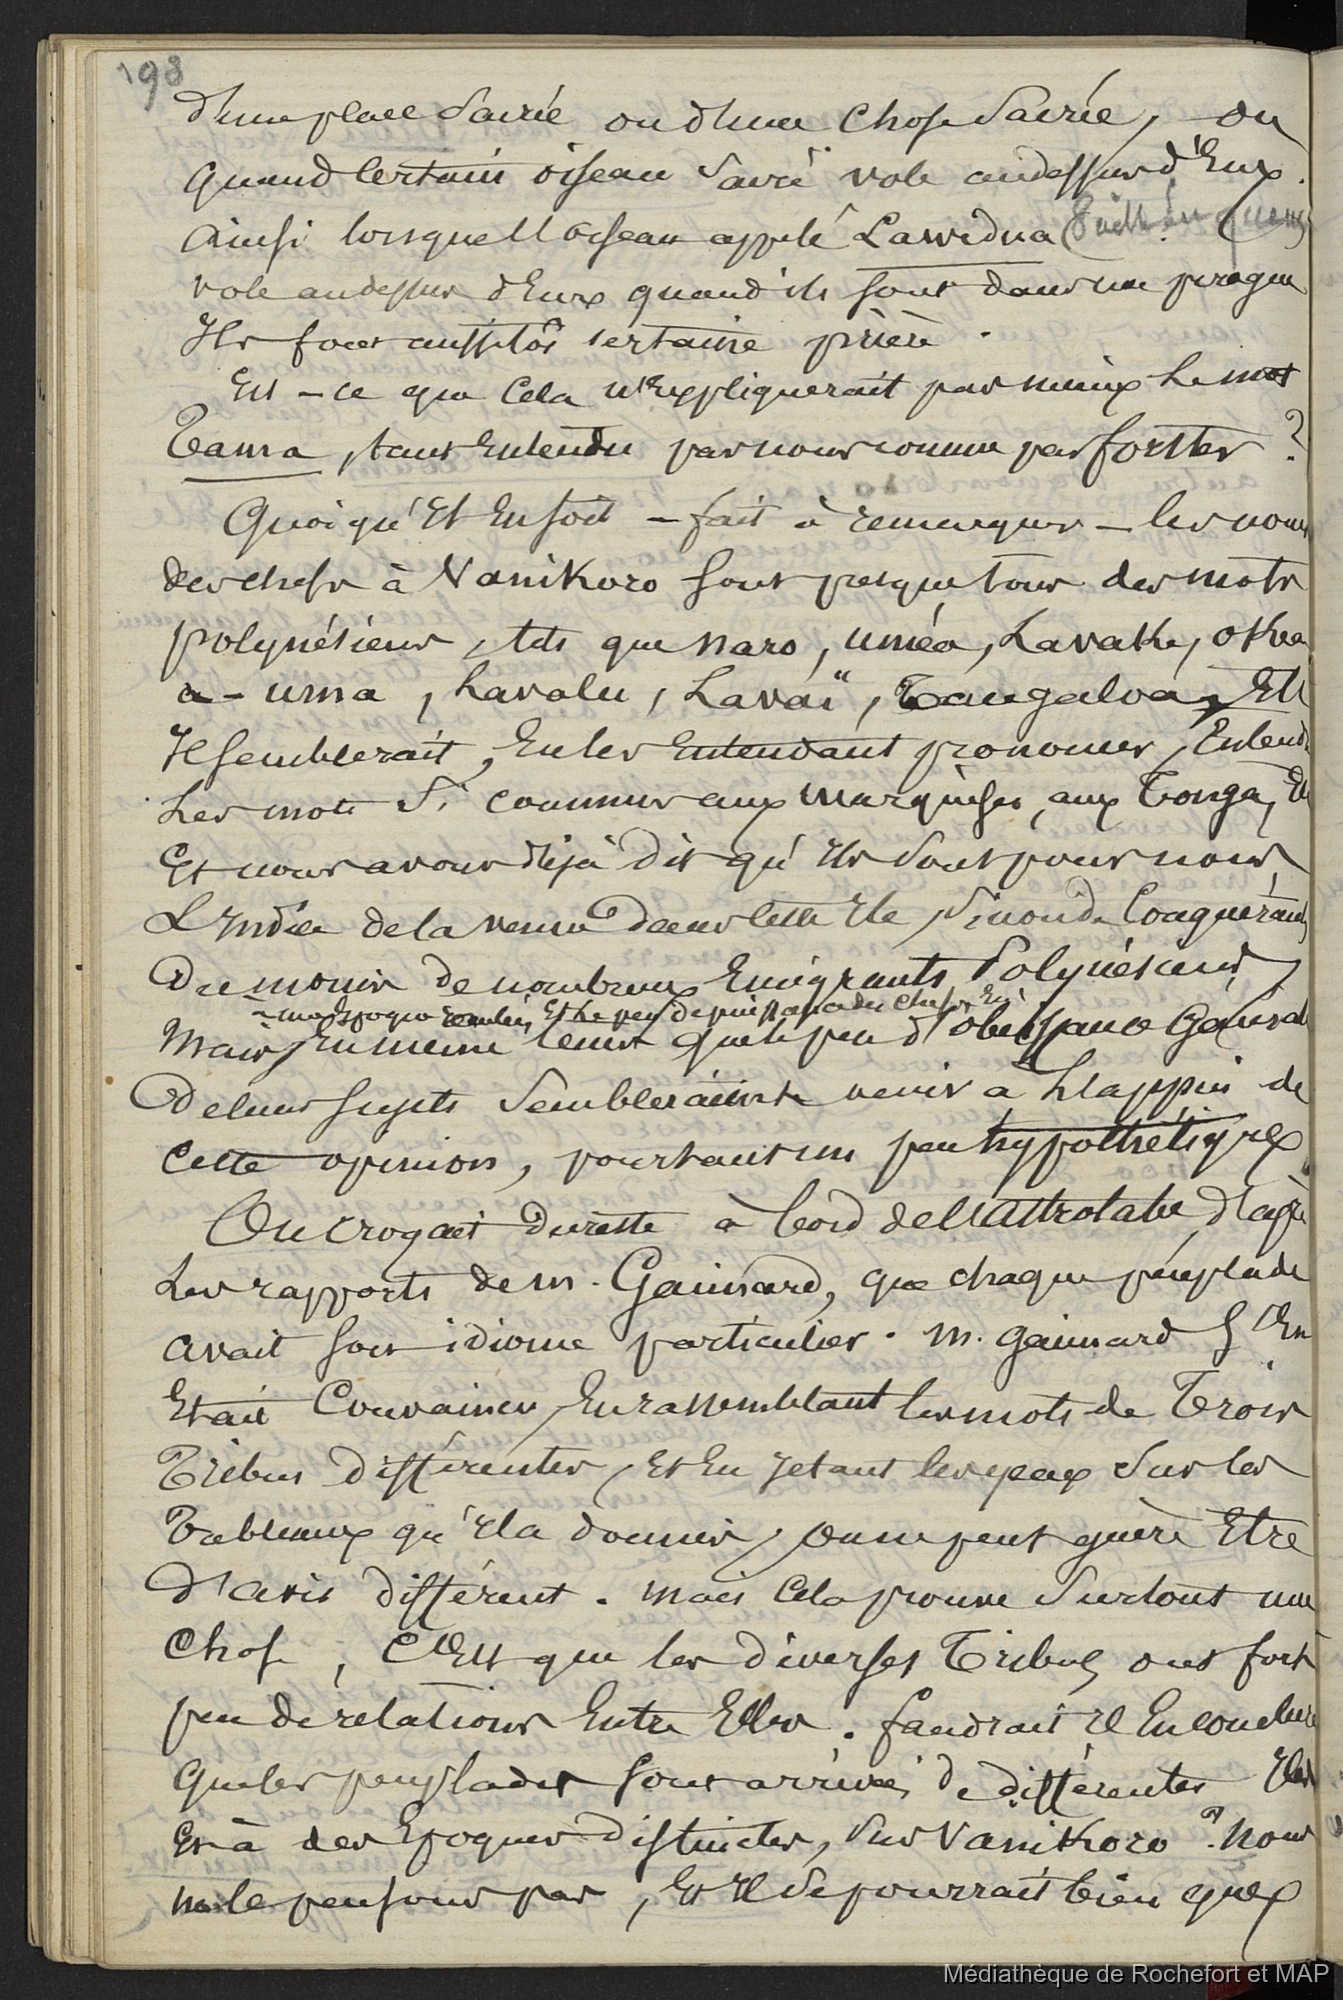 198
d'une place Sacrée ou d'une Chose Sacrée, ou
quand Certain oiseau Sacré vole audessus d'Eux.
Ainsi lorsque l'oiseau appelé Lawedua
vole audessus d'Eux quand ils sont dans une pirogue
Ils font aussitôt certaine prière.
Est-ce que Cela n'Expliquerait pas mieux Le mot
Tama, tant Entendu par nous comme par forster ?
Quoiqu'il En soit - fait à remarquer - les noms
des chefs à Vanikoro sont presque tous des mots
polynésiens, tels que Naro, uméo, Lavaka,
a-uma, Lavalu, Lavaï, Tangaloa, Etc
Il semblerait, En les Entendant prononcer, Entendre
Les mots Si communs aux Marquises, aux Tonga, Etc
Et nous avons déjà dit qu'ils Sont pour nous
L'Indice de la venue dans cette île, Sinon de Conquérants
Du moins de nombreux Emigrants Polynésiens,
à une Epoque reculée, Et le peu de puissance des Chefs En
Mais En même tems que le peu d'obeissance Général
De leurs sujets Sembleraient venir à L'appui de
Cette opinion, pourtant un peu hypothétique
On croyait Dureste à bord de l'Astrolabe, d'après
Les rapports de m. Gaimard, que chaque peuplade
avait son idiome particulier. M. Gaimard s'En
Etait Convaincu En rassemblant les mots de Trois
Tribus Différentes, Et En jetant les yeux Sur les
Tableaux qu'il a donnés, on ne peut guère Etre
D'avis différent. Mais Cela prouve Surtout une
Chose, C'Est que les Diverses Tribus ont fort
peu de relations Entre Elles. faudrait il En conclure
que les peuplades sont arrivées de différentes Iles
Et à des Epoques Distinctes, Sur Vanikoro ? Nous
ne le pensons pas, Et Il Se pourrait bien que
Médiathèque de Rochefort et MAP